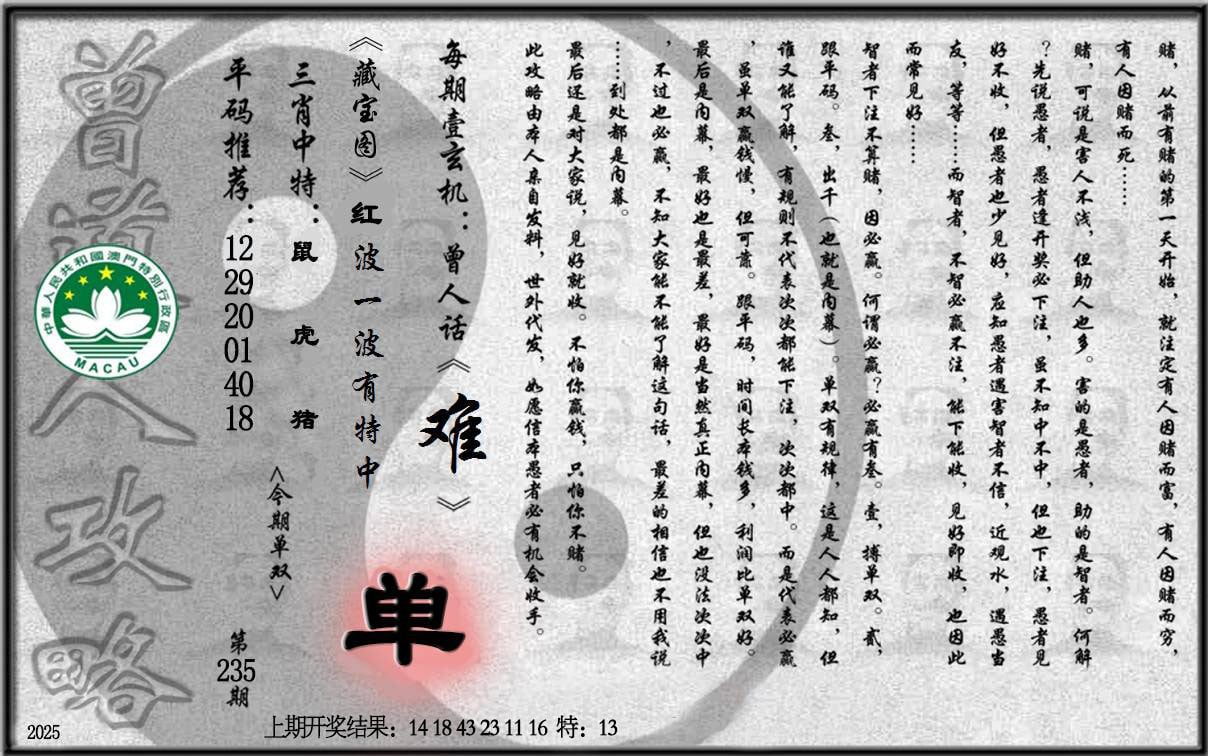 赌，从前有赌的第一天开始，就注定有人因赌而富，有人因赌而穷，
有人因赌而死……
赌，可说是害人不浅，但助人也多。害的是愚者，助的是智者。何解
？先说愚者，愚者逢开奖必下注，虽不知中不中，但也下注，愚者见
好不收，但愚者也少见好，应知愚者遇害智者不信，近观水，遇愚当
友，等等……而智者，不智必赢不注，能下能收，见好即收，也因此
而常见好……
智者下注不算赌，因必赢。何谓必赢？必赢有叁。壹，搏单双。贰，
跟平码。叁，出千（也就是内幕）。单双有规律，这是人人都知，但
谁又能了解，有规则不代表次次都能下注，次次都中。而是代表必赢
，虽单双赢钱慢，但可靠。跟平码，时间长本钱多，利润比单双好。
最后是内幕，最好也是最差，最好是当然真正内幕，但也没法次次中
，不过也必赢，不知大家能不能了解这句话，最差的相信也不用我说
……到处都是内幕。
最后还是对大家说，见好就收。不怕你赢钱，只怕你不赌。
此攻略由本人亲自发料，世外代发，如愿信本愚者必有机会收手。
每期壹玄机：曾人话《难》
《藏宝图》红波一波有特中
单
三肖中特：鼠 虎 猪
<今期单双>
平码推荐：12 29 20 01 40 18
第235期
曾道人攻略
中華人民共和國澳門特別行政區
MACAU
2025
上期开奖结果：14 18 43 23 11 16 特：13